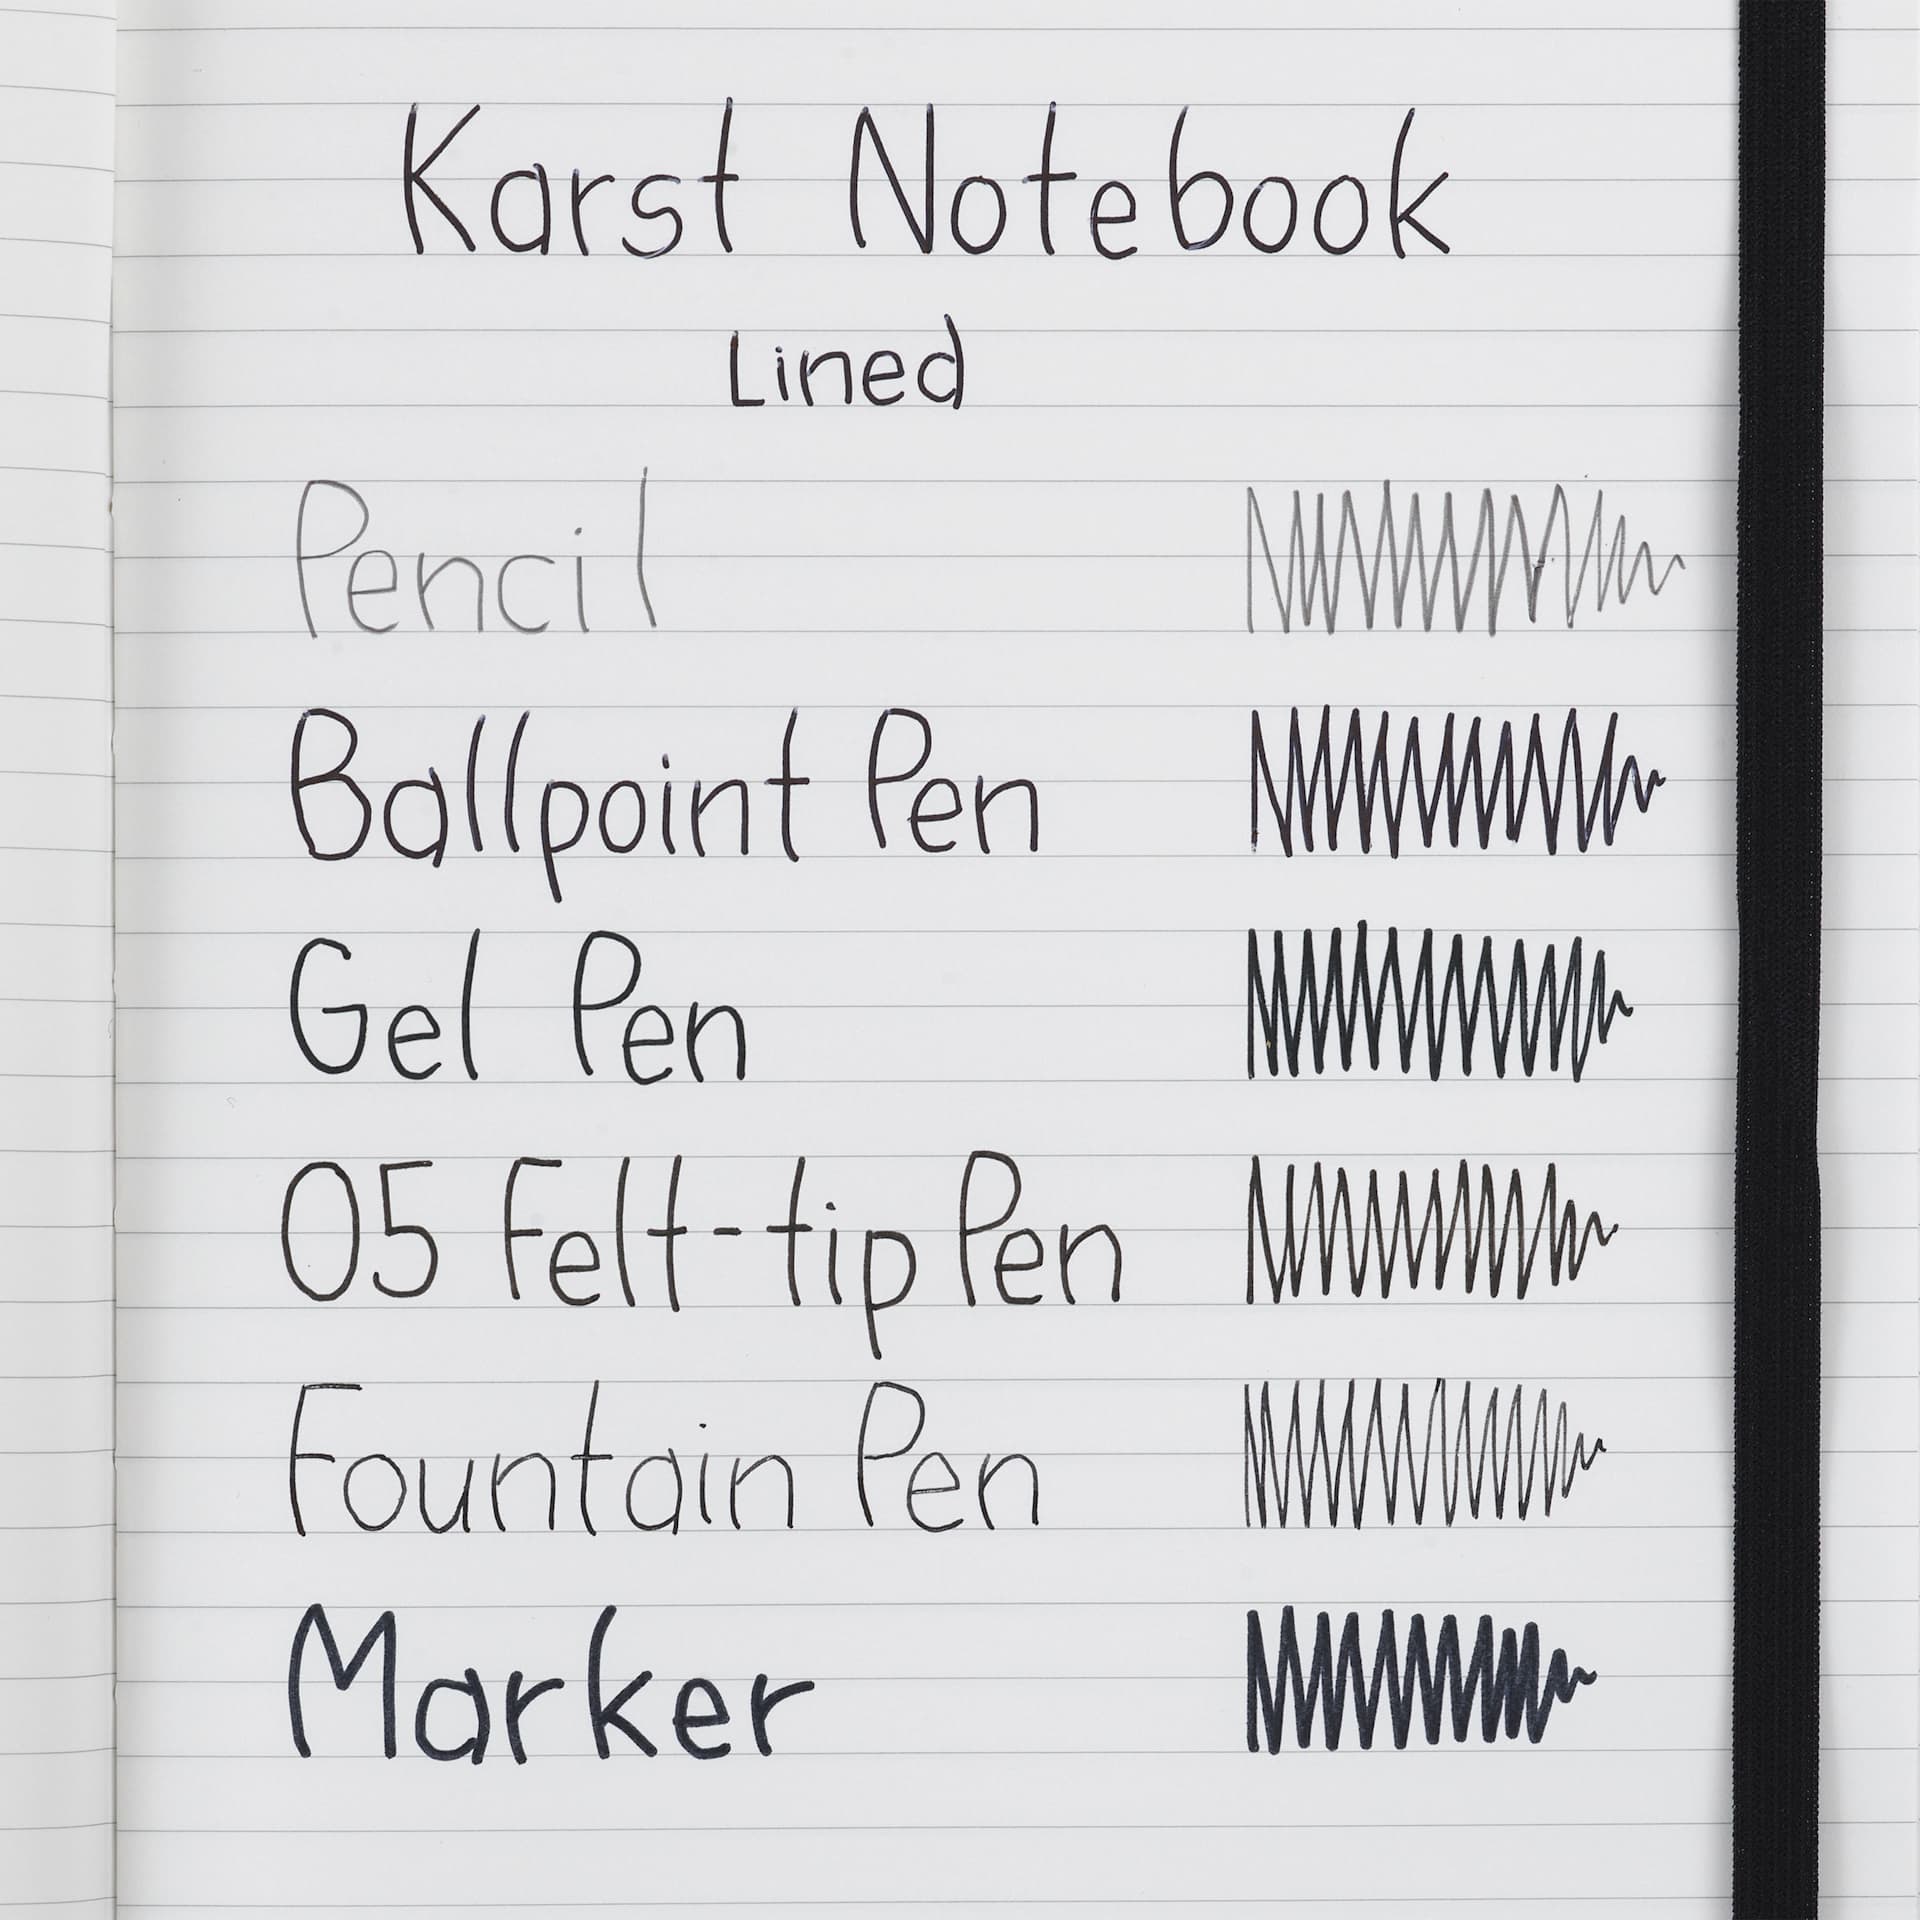 Karst Notebook
Lined
Pencil
Ballpoint Pen
Gel Pen
05 Felt-tip Pen
Fountain Pen
Marker